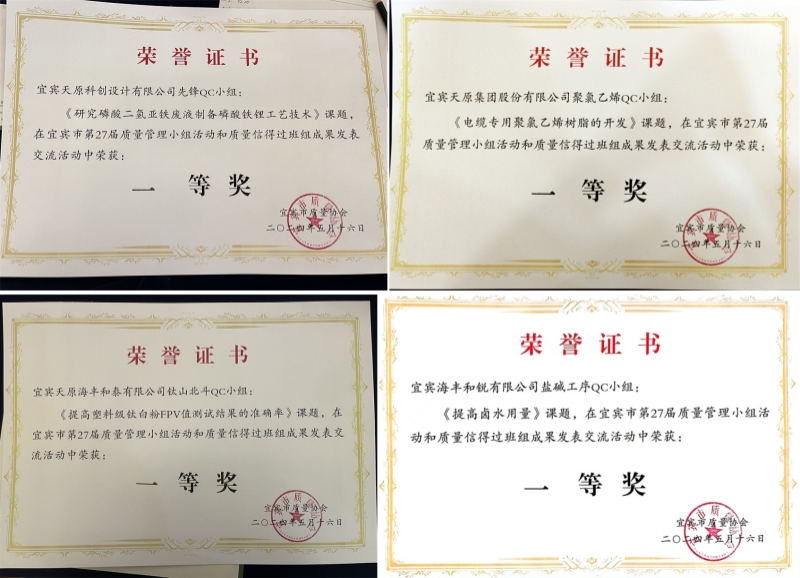 荣誉证书
宜宾天原科创设计有限公司先锋QC小组：
《研究磷酸二氢亚铁废液制备磷酸铁锂工艺技术》课题，
在宜宾市第27届质量管理小组活动和质量信得过班组成果发表
交流活动中荣获：
一等奖
宜宾市质量协会
二〇二四年五月十六日
荣誉证书
宜宾天原集团股份有限公司聚氯乙烯QC小组：
《电缆专用聚氯乙烯树脂的开发》课题，在宜宾市第27届
质量管理小组活动和质量信得过班组成果发表交流活动中荣获：
一等奖
宜宾市质量协会
二〇二四年五月十六日
荣誉证书
宜宾天原海丰和泰有限公司钛山北斗QC小组：
《提高塑料级钛白粉FPV值测试结果的准确率》课题，在
宜宾市第27届质量管理小组活动和质量信得过班组成果发表交
流活动中荣获：
一等奖
宜宾市质量协会
二〇二四年五月十六日
荣誉证书
宜宾海丰和锐有限公司盐碱工序QC小组：
《提高卤水用量》课题，在宜宾市第27届质量管理小组活
动和质量信得过班组成果发表交流活动中荣获：
一等奖
宜宾市质量协会
二〇二四年五月十六日